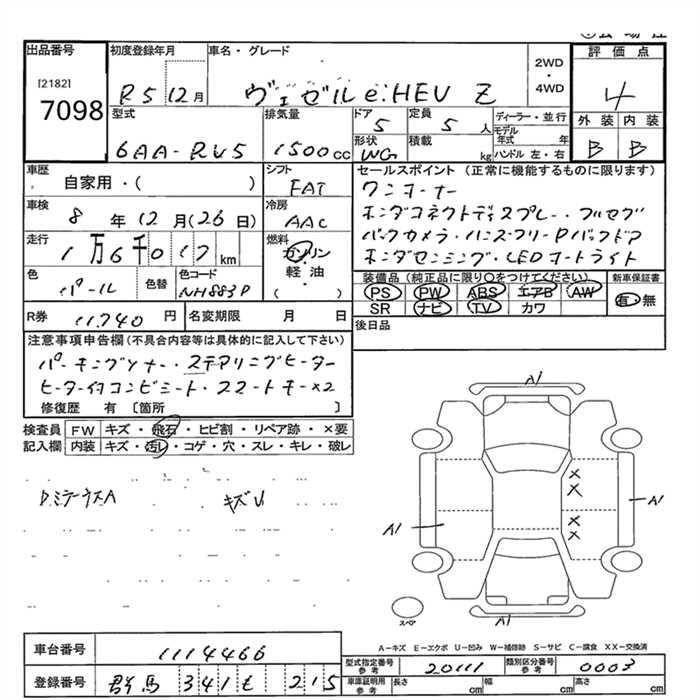 出品番号 初度登録年月 車名・グレード 2WD・4WD 評価点
[2182]
7098 R5 12月 ヴェゼル e:HEV Z 4
型式 排気量 ドア 定員 ディーラー・並行 外装 内装
6AA-RV5 1500cc 5 5人 モデル年式 年 B B
形状 積載 kg ハンドル 左・右
WG
車歴 自家用・( ) シフト FAT セールスポイント (正常に機能するものに限ります)
ワンオーナー
車検 8年 12月 (26日) 冷房 AAC ホンダコネクトディスプレー・フルセグ
走行 1万6千017km 燃料 ガソリン 軽油 ( バックカメラ・ハンズフリーPバックドア
ホンダセンシング・LEDオートライト
色 パール 色替 色コード NH883P 装備品 (純正品に限り○をつけてください) 新車保証書
PS PW ABS エアB AW 有・無
SR ナビ TV カワ
R券 11,740円 名変期限 月 日 後日品
注意事項申告欄 (不具合内容等は具体的に記入して下さい)
パーキングソナー・ステアリングヒーター
ヒーター付コンビシート・スマートキー×2
修復歴 有 [箇所 ]
検査員 FW キズ・飛石・ヒビ割・リペア跡・×要
記入欄 内装 キズ・汚レ・コゲ・穴・スレ・キレ・破レ
キズU
A1
A1 A1
A1
スペア
A-キズ E-エクボ U-凹み W-補修跡 S-サビ C-腐食 XX-交換済
車台番号 1114466
型式指定番号 参考 20111 類別区分番号 参考 0003
登録番号 群馬 341 せ 215
車庫証明用 参考 長さ cm 幅 cm 高さ cm